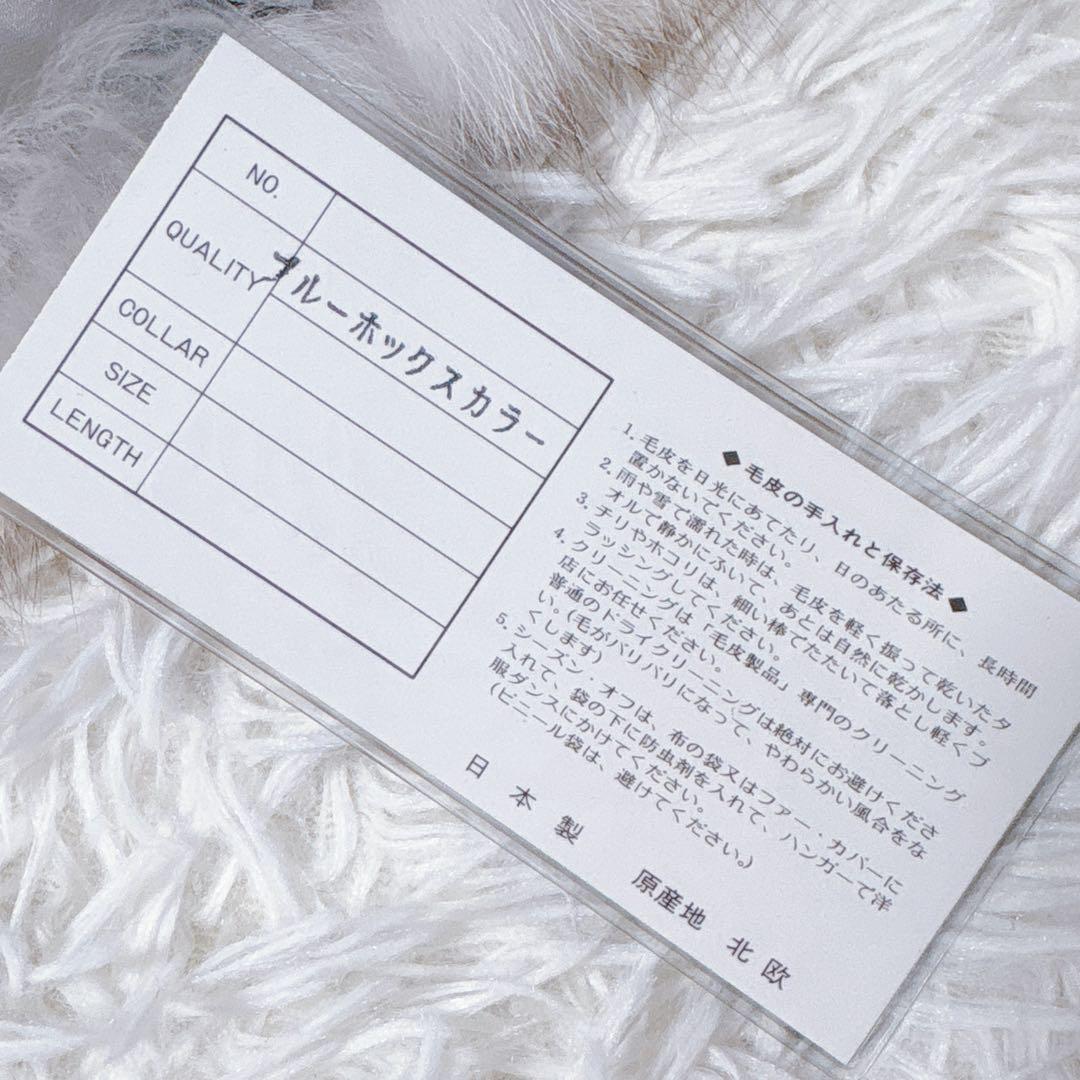 NO.
QUALITY ブルーホックスカラー
COLLAR
SIZE
LENGTH
◆ 毛皮の手入れと保存法 ◆
1. 毛皮を日光にあてたり、日のあたる所に、長時間
置かないでください。
2. 雨や雪で濡れた時は、毛皮を軽く振って乾いたタ
オルで静かにふいて、あとは自然に乾かします。
3. チリやホコリは、細い棒でたたいて落とし軽くブ
ラッシングしてください。
4. クリーニングは「毛皮製品」専門のクリーニング
店にお任せください。
普通のドライクリーニングは絶対にお避けくださ
い。(毛がバリバリになって、やわらかい風合をな
くします)
5. シーズン・オフは、布の袋又はファー・カバーに
入れて、袋の下に防虫剤を入れて、ハンガーで洋
服ダンスにかけてください。
(ビニール袋は、避けてください。)
日本製 原産地 北欧